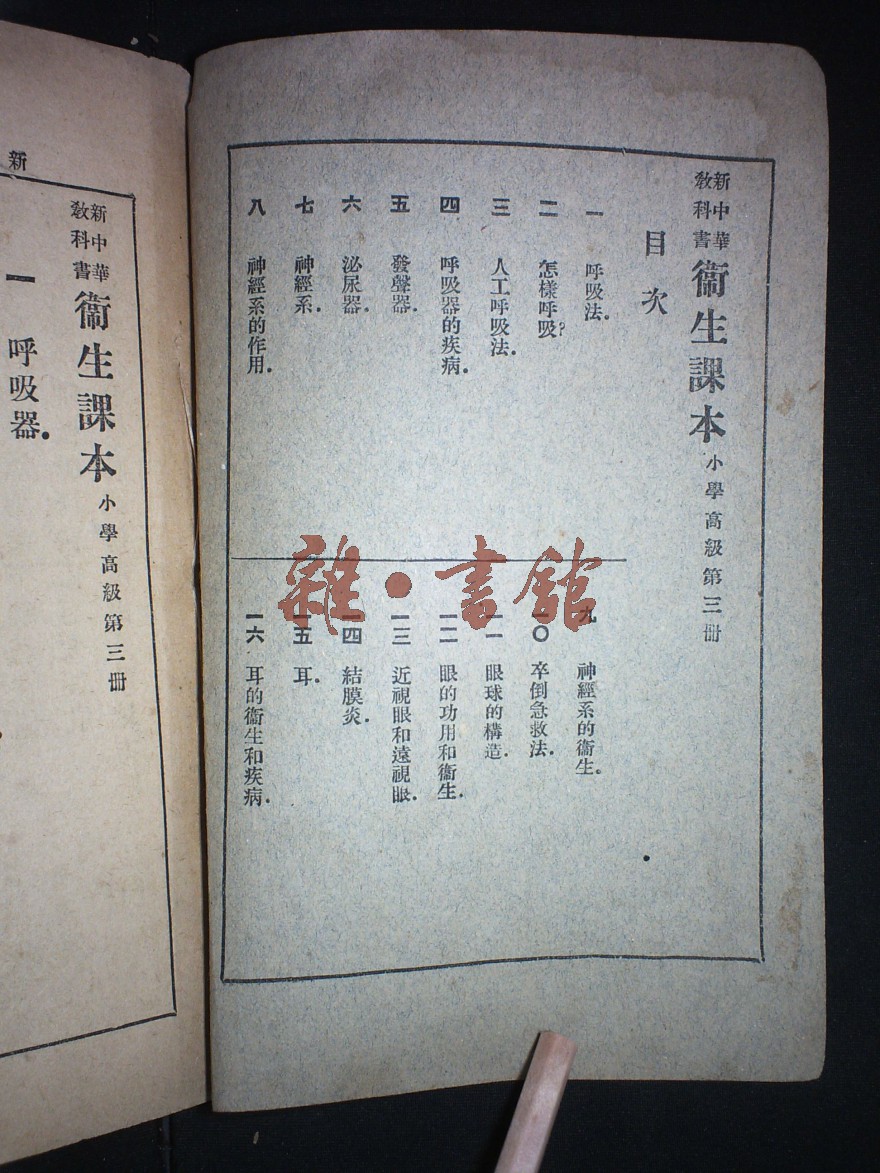 新中華
教科書
衞生課本
小學高級第三冊
目次
一 呼吸法.
二 怎樣呼吸?
三 人工呼吸法.
四 呼吸器的疾病.
五 發聲器.
六 泌尿器.
七 神經系.
八 神經系的作用.
九 神經系的衞生.
一〇 卒倒急救法.
一一 眼球的構造.
一二 眼的功用和衞生.
一三 近視眼和遠視眼.
一四 結膜炎.
一五 耳.
一六 耳的衞生和疾病.
雜·書館
新
新中華
教科書
衞生課本
小學高級第三冊
一 呼吸器.